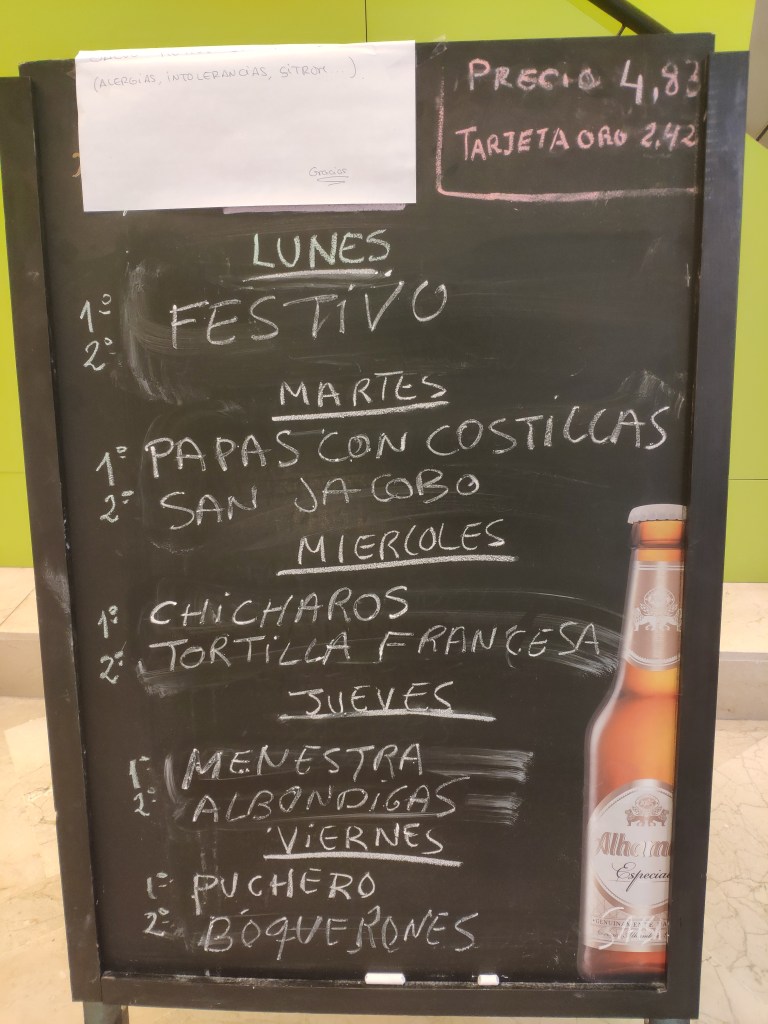 (ALERGIAS, INTOLERANCIAS, SITROM...)
Gracias
PRECIO 4,83
TARJETA ORO 2,42
LUNES
1º
FESTIVO
2º
MARTES
1º PAPAS CON COSTILLAS
2º SAN JACOBO
MIERCOLES
1º CHICHAROS
2º TORTILLA FRANCESA
JUEVES
1º MENESTRA
2º ALBONDIGAS
VIERNES
1º PUCHERO
2º BOQUERONES
Especial